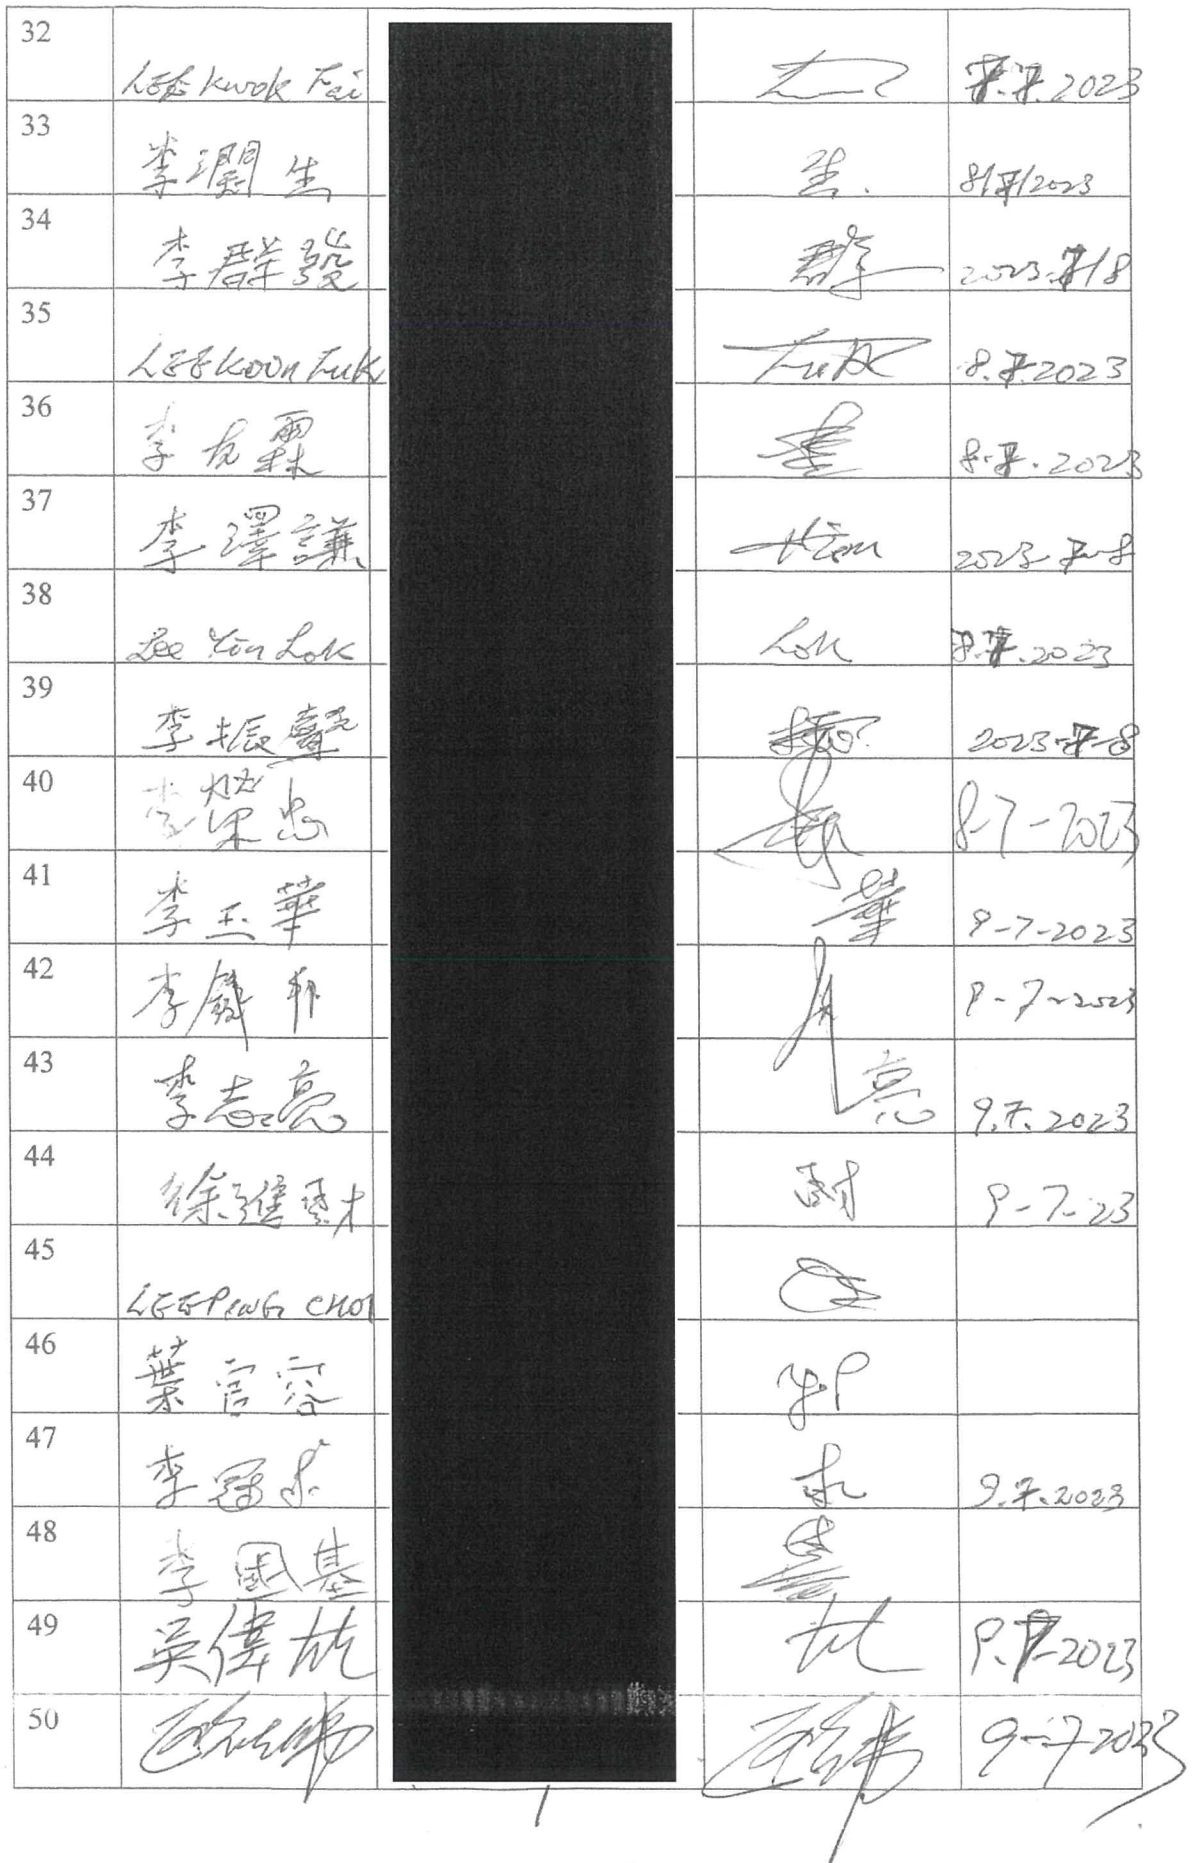 32 LEE Kwok Fai 7.7.2023
33 李潤生 生. 8/7/2023
34 李群發 群 2023.7/8
35 LEE Koon Fuk Fuk 8.7.2023
36 李友霖 8.7.2023
37 李澤謙 Him 2023-7-8
38 Lee Yin Lok Lok 8.7.2023
39 李振聲 2023-7-8
40 李燦忠 8-7-2023
41 李玉華 華 9-7-2023
42 李 9-7-2023
43 李志亮 亮 9.7.2023
44 徐進財 財 9-7-23
45 LEE PING CHOI
46 葉官容 y.P
47 李冠求 求 9.7.2023
48 李國基
49 吳偉 9.7-2023
50 9-7-2023